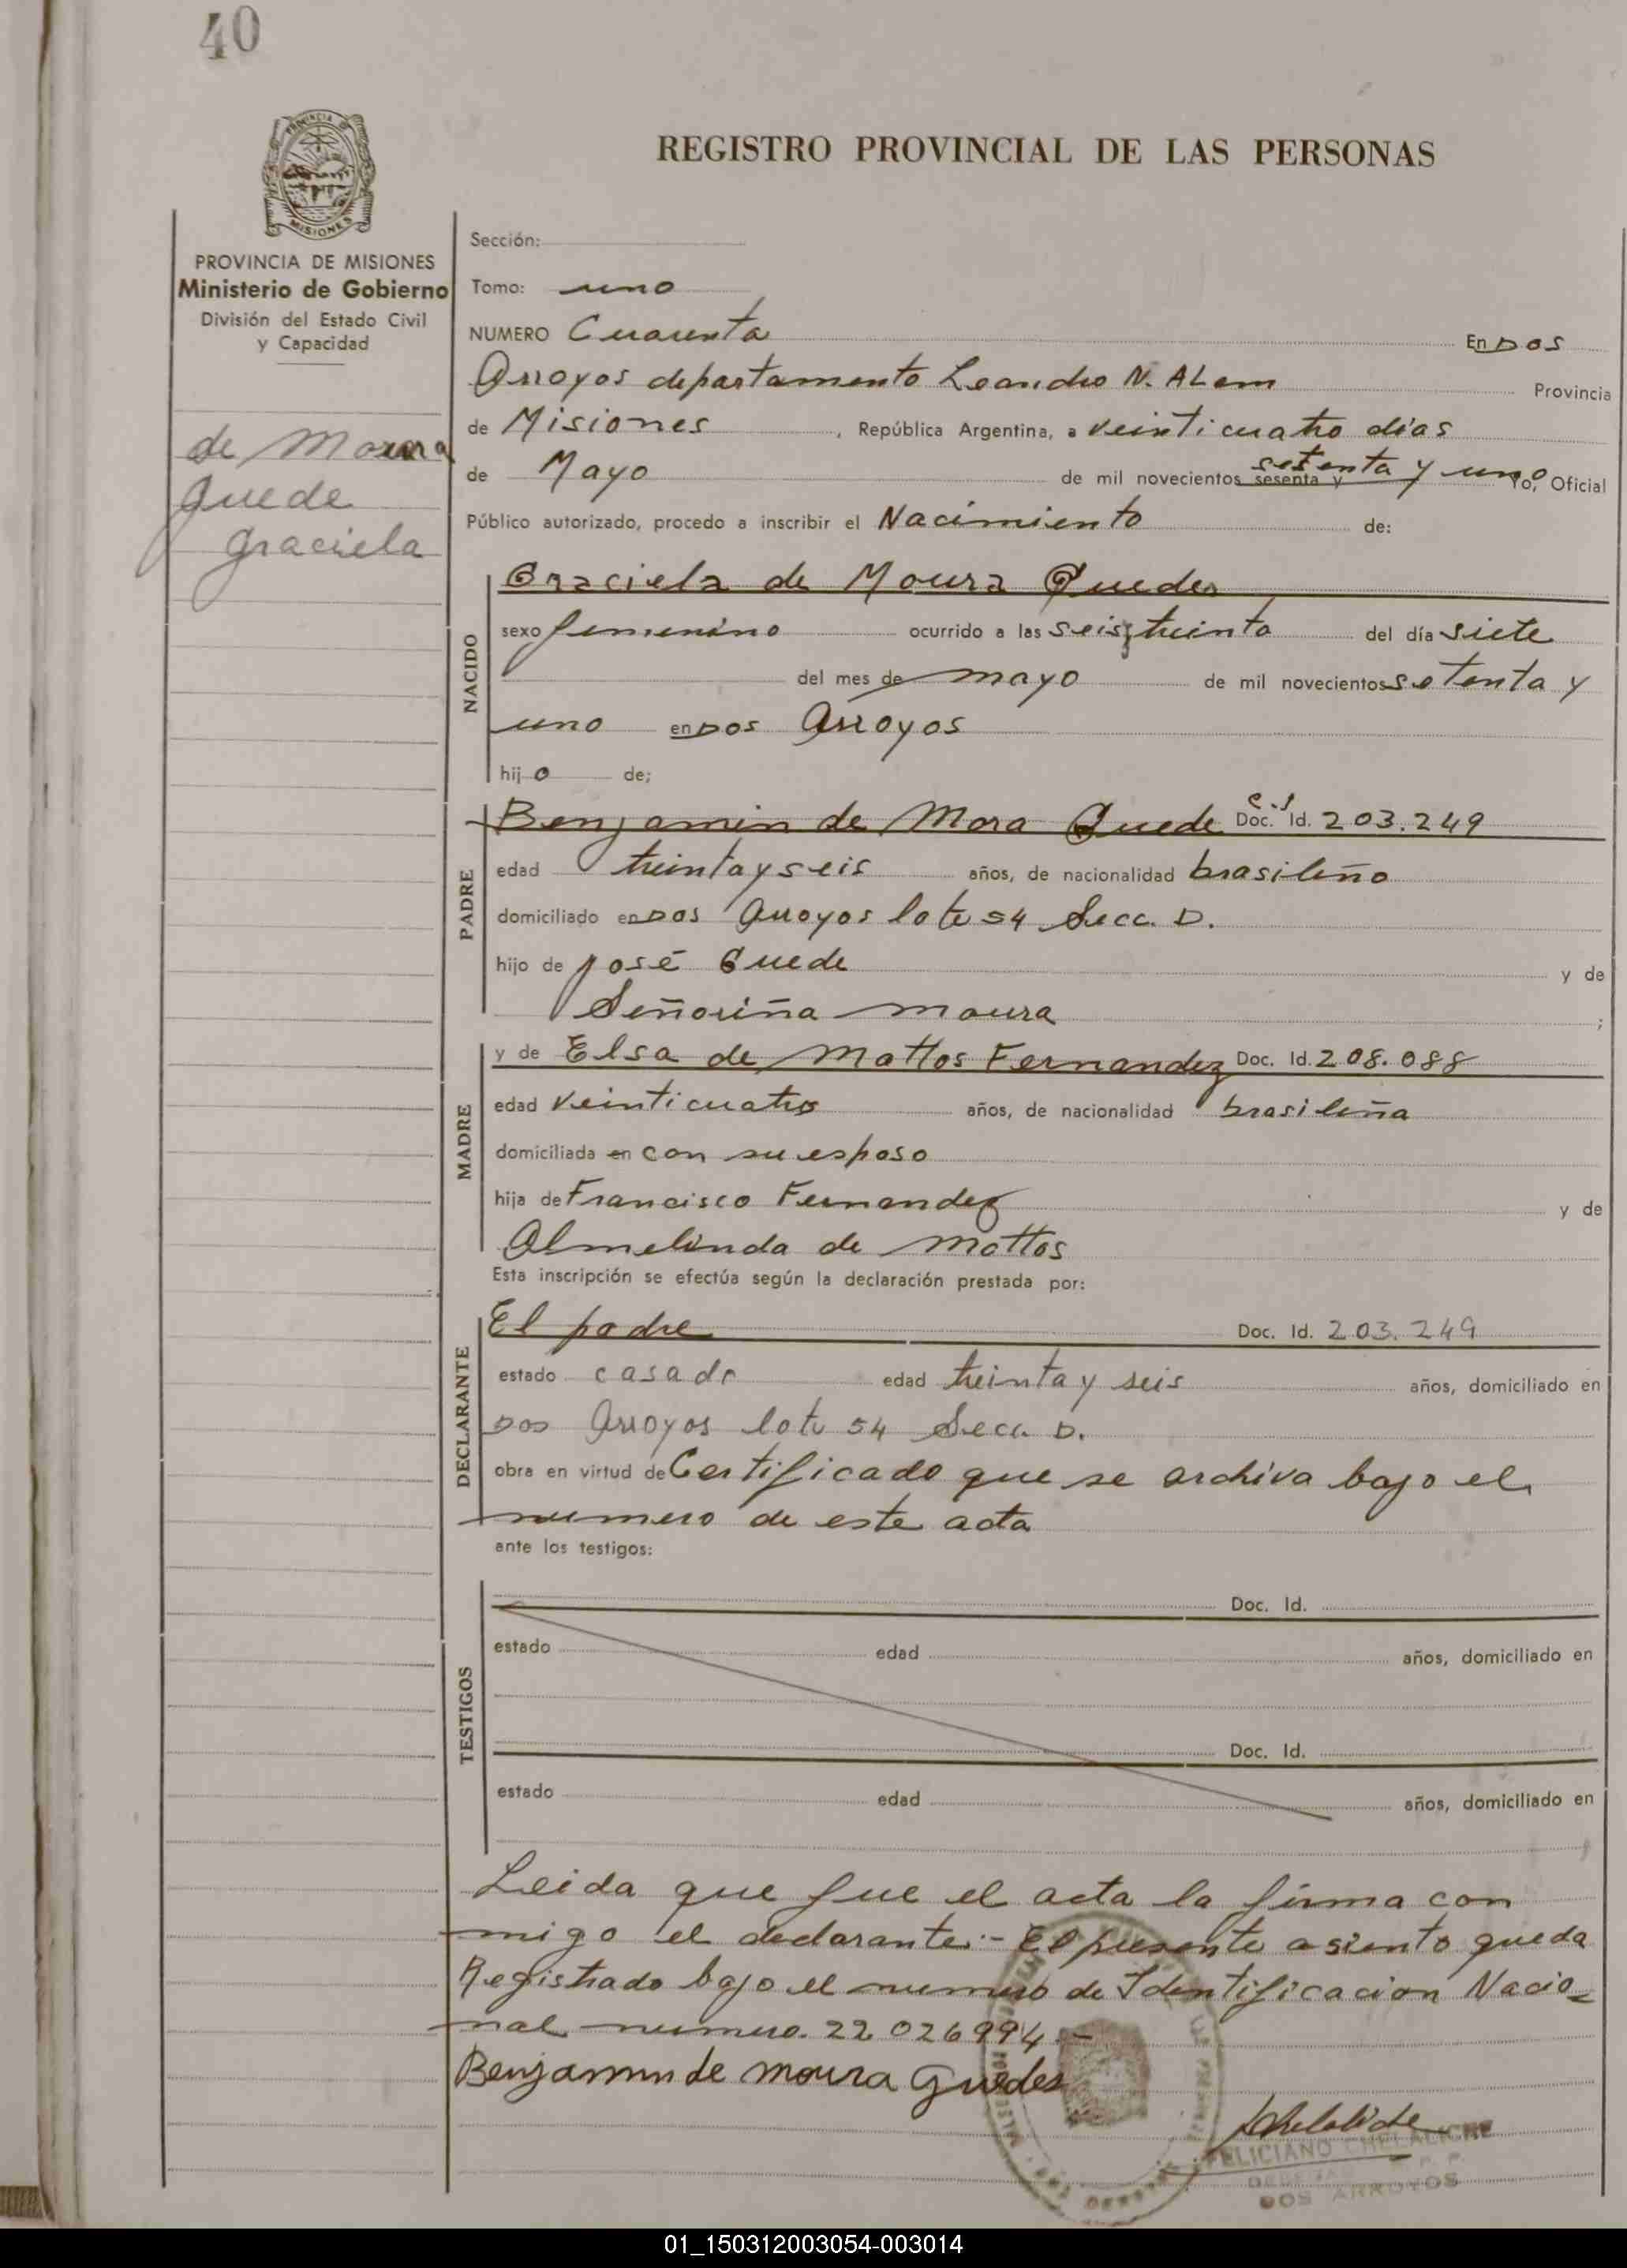 40
PROVINCIA DE
MISIONES
REGISTRO PROVINCIAL DE LAS PERSONAS
PROVINCIA DE MISIONES
Ministerio de Gobierno
División del Estado Civil
y Capacidad
de Moura
Guede
Graciela
Sección:
Tomo: uno
NUMERO Cuarenta En Dos
Arroyos departamento Leandro N. ALem Provincia
de Misiones, República Argentina, a veinticuatro días
de Mayo de mil novecientos sesenta y setenta y uno Yo, Oficial
Público autorizado, procedo a inscribir el Nacimiento de:
NACIDO
Graciela de Moura Guedes
sexo femenino ocurrido a las seis y treinta del día siete
del mes de mayo de mil novecientos setenta y
uno en Dos Arroyos
hijo de;
PADRE
Benjamin de Mora Guede C.I. Doc. Id. 203.249
edad treinta y seis años, de nacionalidad brasileño
domiciliado en Dos Arroyos lote 54 Secc. D.
hijo de José Guede y de
Señoriña Moura ;
MADRE
y de Elsa de Mattos Fernandez Doc. Id. 208.088
edad veinticuatro años, de nacionalidad brasileña
domiciliada en con su esposo
hija de Francisco Fernandez y de
Almelinda de Mattos
Esta inscripción se efectúa según la declaración prestada por:
DECLARANTE
El padre Doc. Id. 203.249
estado casado edad treinta y seis años, domiciliado en
Dos Arroyos lote 54 Secc. D.
obra en virtud de Certificado que se archiva bajo el
numero de este acta
ante los testigos:
TESTIGOS
Doc. Id.
estado edad años, domiciliado en
Doc. Id.
estado edad años, domiciliado en
Leida que fue el acta la firma con
migo el declarante:- El presente asiento queda
Registrado bajo el numero de Identificacion Nacio=
nal numero. 22 026994.-
Benjamin de Moura Guedes
FELICIANO CHELALICHE
DOS ARROYOS
01_150312003054-003014